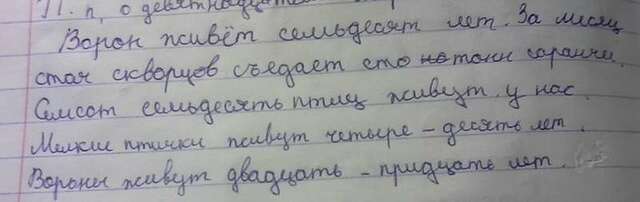 П. п, о девятнадцати
Ворон живёт семьдесят лет. За месяц
стая скворцов съедает сто тонн саранчи.
Семсот семьдесять птиц живут у нас.
Мелкие птички живут четыре - десять лет.
Вороны живут двадцать - тридцать лет.